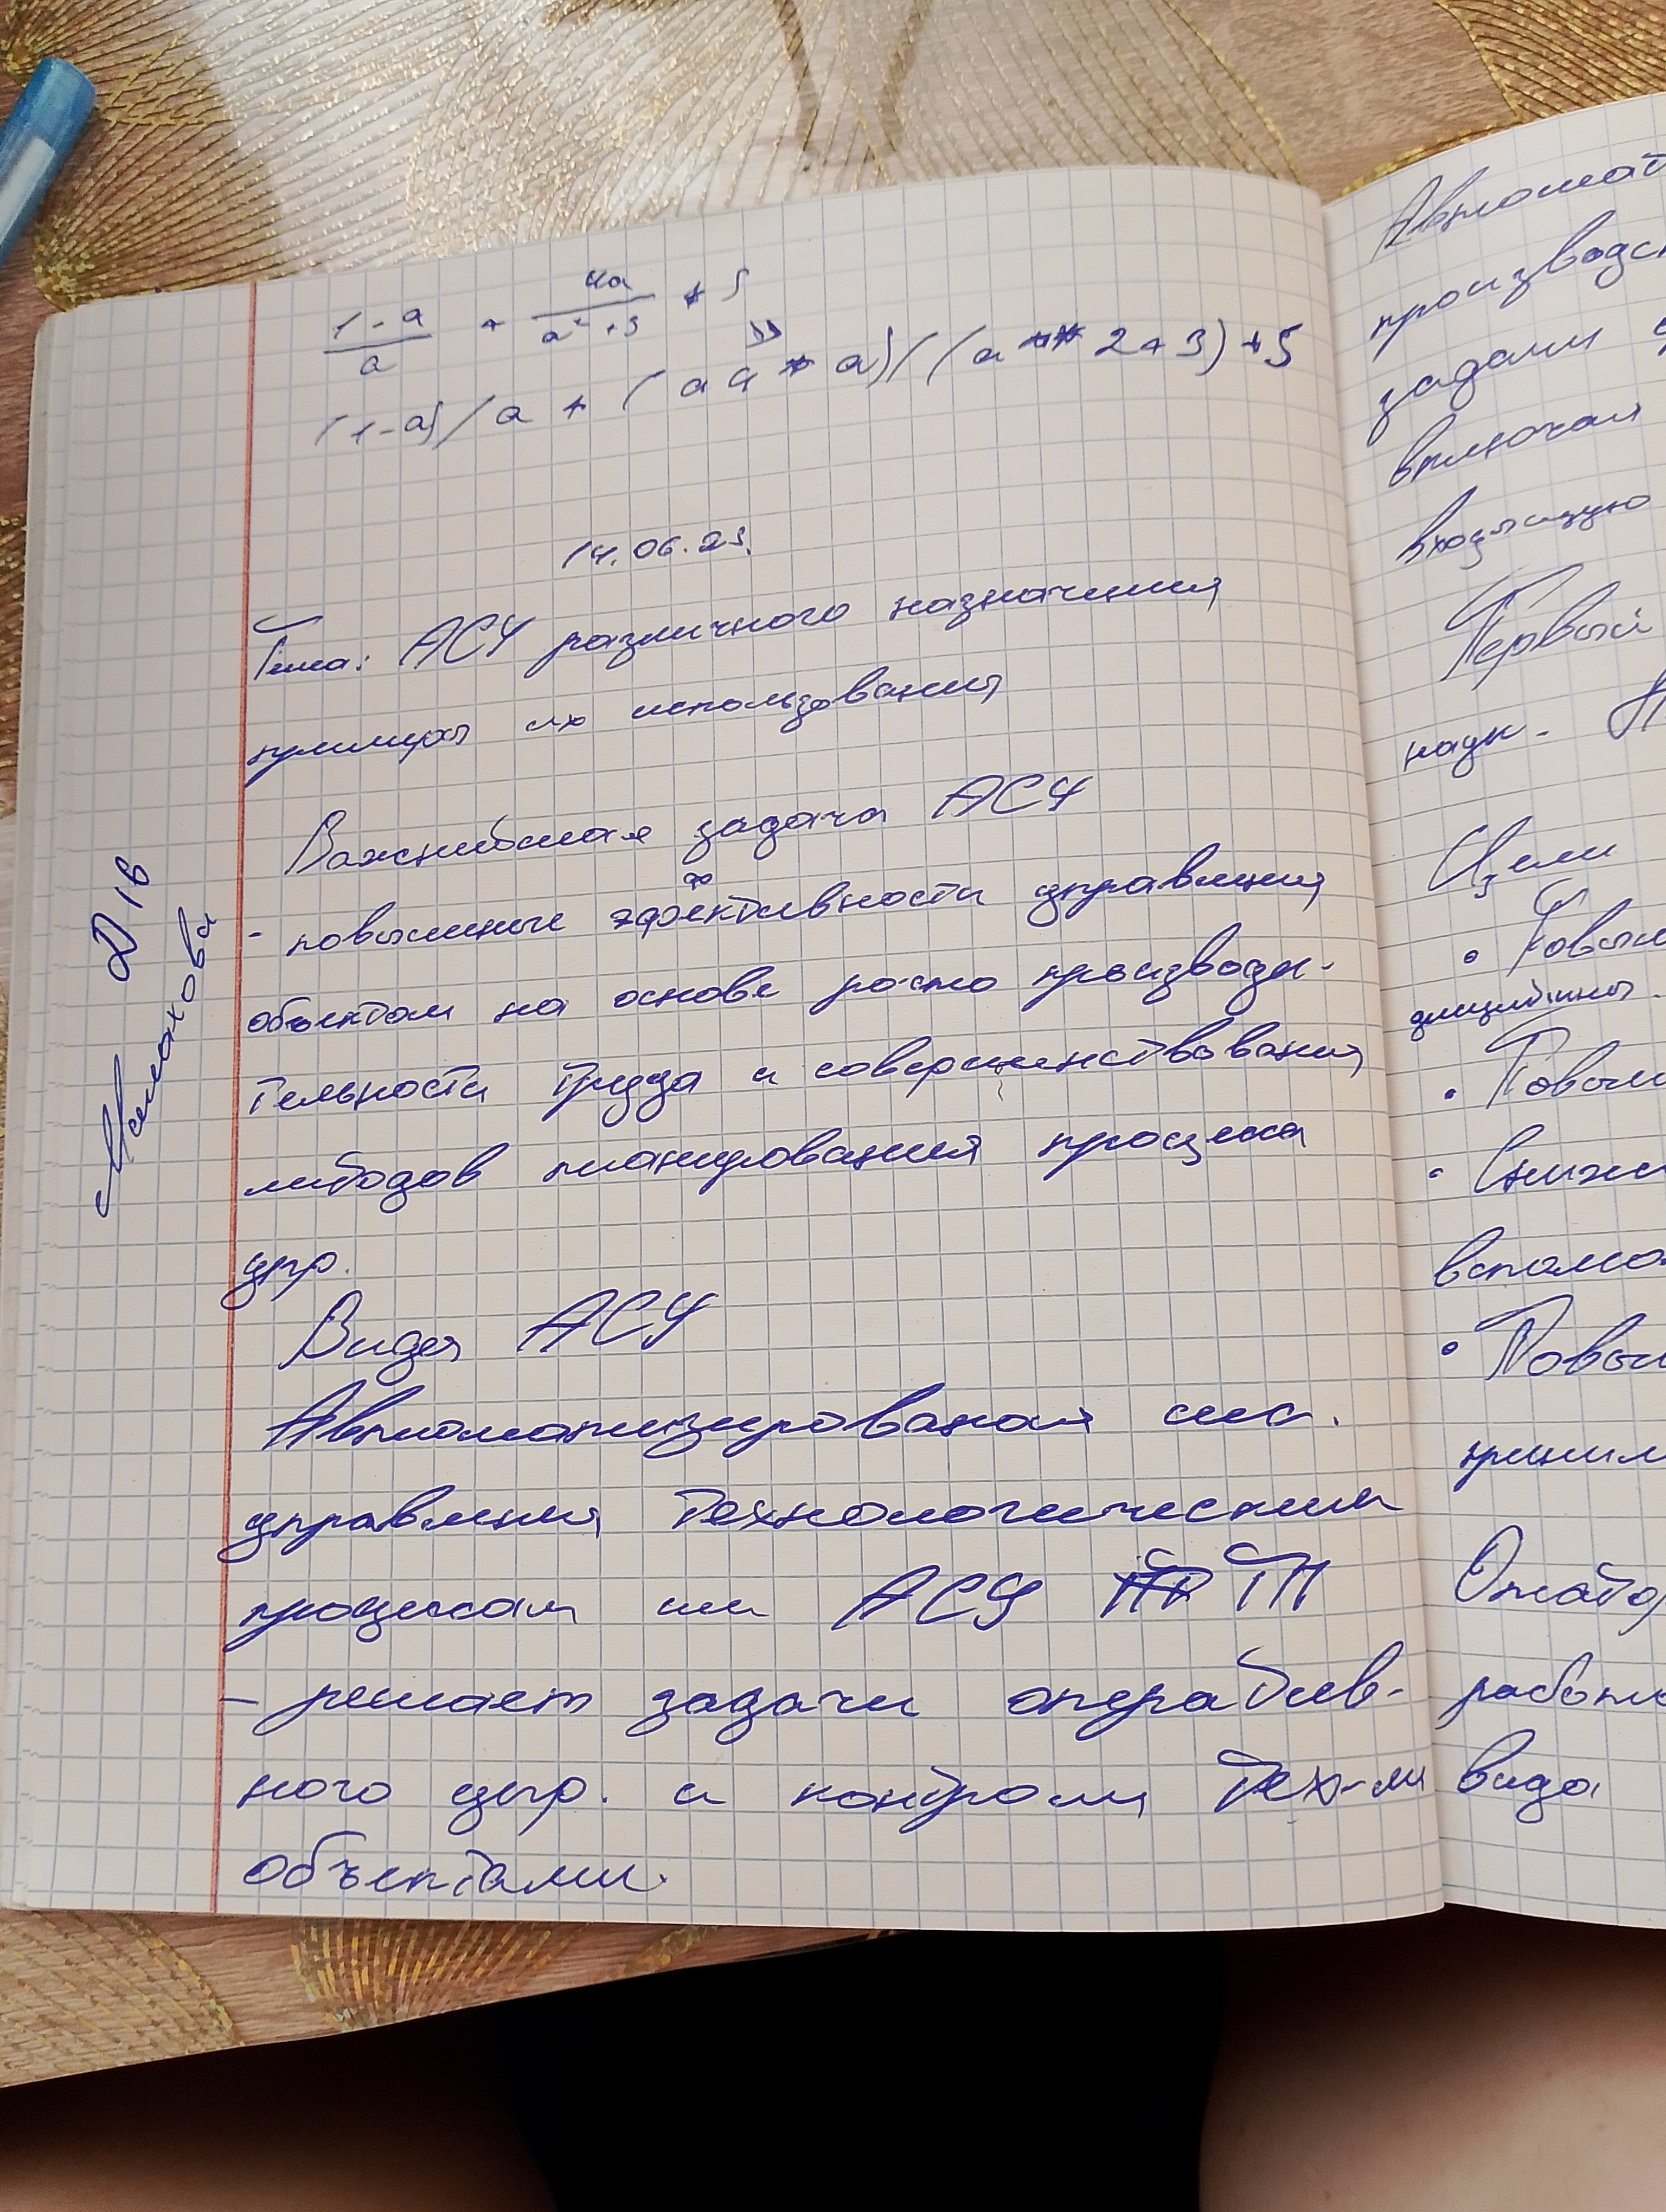 1-a/a + 4a/a²+3 + 5
(1-a)/a + (4 * a)/(a ** 2+3)+5
14.06.23.
Тема: АСУ различного назначения
примеры их использования
Важнейшая задача АСУ
- повышение эффективности управления
объектом на основе роста производи-
тельности труда и совершенствования
методов планирования процесса
упр.
Виды АСУ
Автоматизированая сис.
управления технологическим
процессам или АСУ ТП
- решает задачи оператив-
ного упр. и контроля тех-ми
объектами.
Д 1в
Автомат
производс
задачи
включая
входящую
Первый
надж.
Цели
• Повыш
дисциплины.
• Повыш
• Сниже
вспомо
• Повыш
приним
работ
вида